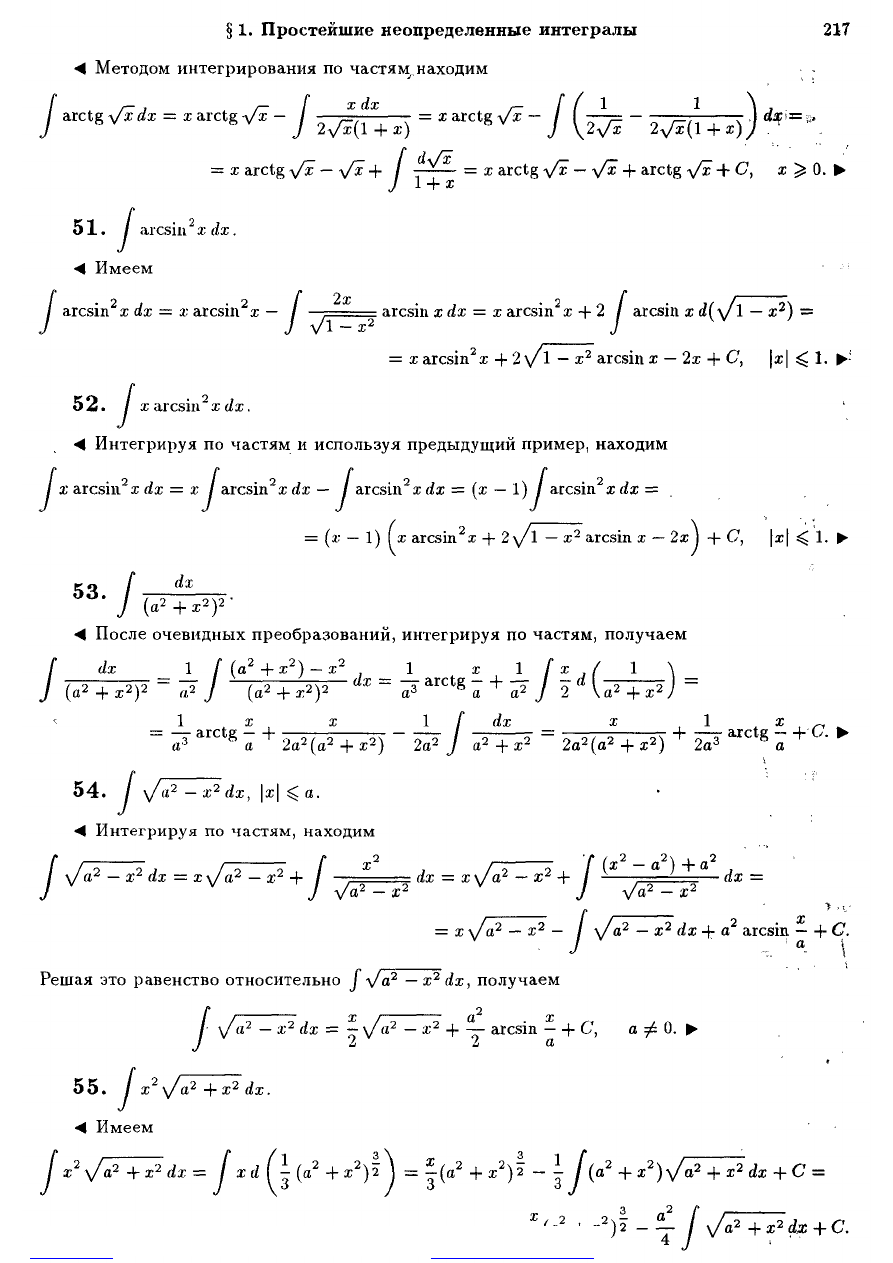 § 1. Простейшие неопределенные интегралы 217
◄ Методом интегрирования по частям находим
∫ arctg √x dx = x arctg √x − ∫ x dx / (2√x(1 + x)) = x arctg √x − ∫ (1/(2√x) − 1/(2√x(1 + x))) dx =
= x arctg √x − √x + ∫ d√x / (1 + x) = x arctg √x − √x + arctg √x + C, x ⩾ 0. ►
51. ∫ arcsin² x dx.
◄ Имеем
∫ arcsin² x dx = x arcsin² x − ∫ 2x/√(1 − x²) arcsin x dx = x arcsin² x + 2 ∫ arcsin x d(√(1 − x²)) =
= x arcsin² x + 2√(1 − x²) arcsin x − 2x + C, |x| ⩽ 1. ►
52. ∫ x arcsin² x dx.
◄ Интегрируя по частям и используя предыдущий пример, находим
∫ x arcsin² x dx = x ∫ arcsin² x dx − ∫ arcsin² x dx = (x − 1) ∫ arcsin² x dx =
= (x − 1) (x arcsin² x + 2√(1 − x²) arcsin x − 2x) + C, |x| ⩽ 1. ►
53. ∫ dx / (a² + x²)².
◄ После очевидных преобразований, интегрируя по частям, получаем
∫ dx / (a² + x²)² = 1/a² ∫ ((a² + x²) − x²) / (a² + x²)² dx = 1/a³ arctg x/a + 1/a² ∫ x/2 d(1/(a² + x²)) =
= 1/a³ arctg x/a + x/(2a²(a² + x²)) − 1/(2a²) ∫ dx/(a² + x²) = x/(2a²(a² + x²)) + 1/(2a³) arctg x/a + C. ►
54. ∫ √(a² − x²) dx, |x| ⩽ a.
◄ Интегрируя по частям, находим
∫ √(a² − x²) dx = x√(a² − x²) + ∫ x²/√(a² − x²) dx = x√(a² − x²) + ∫ ((x² − a²) + a²)/√(a² − x²) dx =
= x√(a² − x²) − ∫ √(a² − x²) dx + a² arcsin x/a + C.
Решая это равенство относительно ∫ √(a² − x²) dx, получаем
∫ √(a² − x²) dx = x/2 √(a² − x²) + a²/2 arcsin x/a + C, a ≠ 0. ►
55. ∫ x² √(a² + x²) dx.
◄ Имеем
∫ x² √(a² + x²) dx = ∫ x d(1/3 (a² + x²)^(3/2)) = x/3 (a² + x²)^(3/2) − 1/3 ∫ (a² + x²)√(a² + x²) dx + C =
)^(3/2) − a²/4 ∫ √(a² + x²) dx + C.